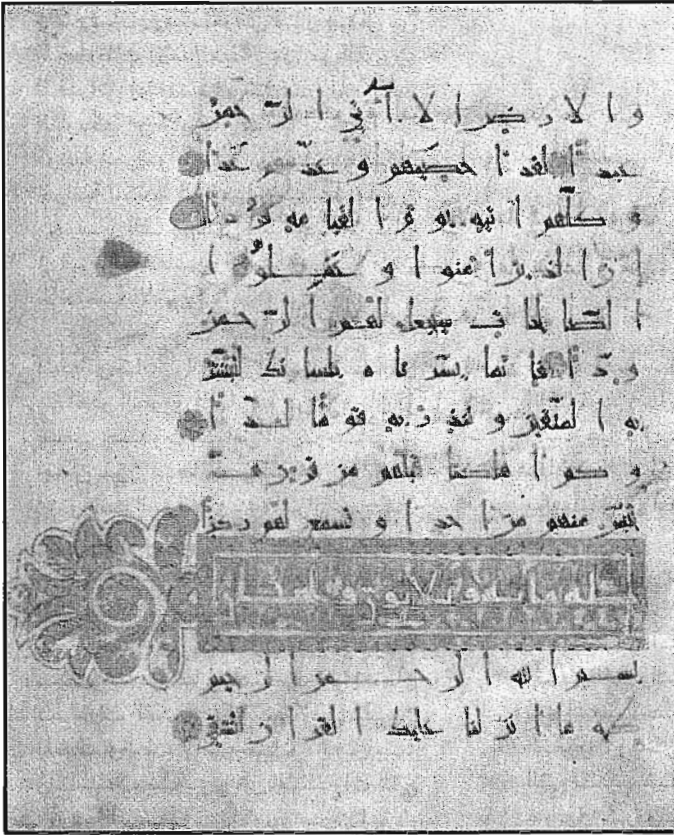 والارض الا آتي الرحمن
عبدا لقد احصيهم وعدهم عدا
وكلهم اتيه يوم القيامه فردا
ان الذين امنوا وعملوا
الصالحات سيجعل لهم الرحمن
ودا فانما يسرناه بلسانك لتبشر
به المتقين وتنذر به قوما لدا
وكم اهلكنا قبلهم من قرن هل
تحس منهم من احد او تسمع لهم ركزا
مايه وثلاثون
بسم الله الرحمن الرحيم
طه ما انزلنا عليك القران لتشقى